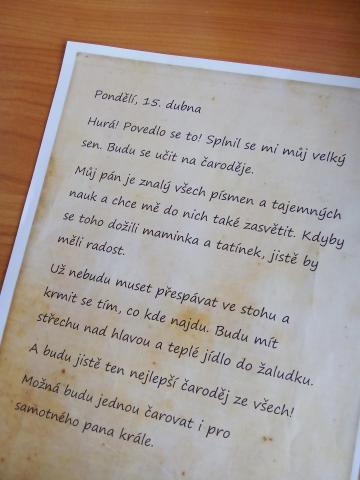 Pondělí, 15. dubna
Hurá! Povedlo se to! Splnil se mi můj velký
sen. Budu se učit na čaroděje.
Můj pán je znalý všech písmen a tajemných
nauk a chce mě do nich také zasvětit. Kdyby
se toho dožili maminka a tatínek, jistě by
měli radost.
Už nebudu muset přespávat ve stohu a
krmit se tím, co kde najdu. Budu mít
střechu nad hlavou a teplé jídlo do žaludku.
A budu jistě ten nejlepší čaroděj ze všech!
Možná budu jednou čarovat i pro
samotného pana krále.